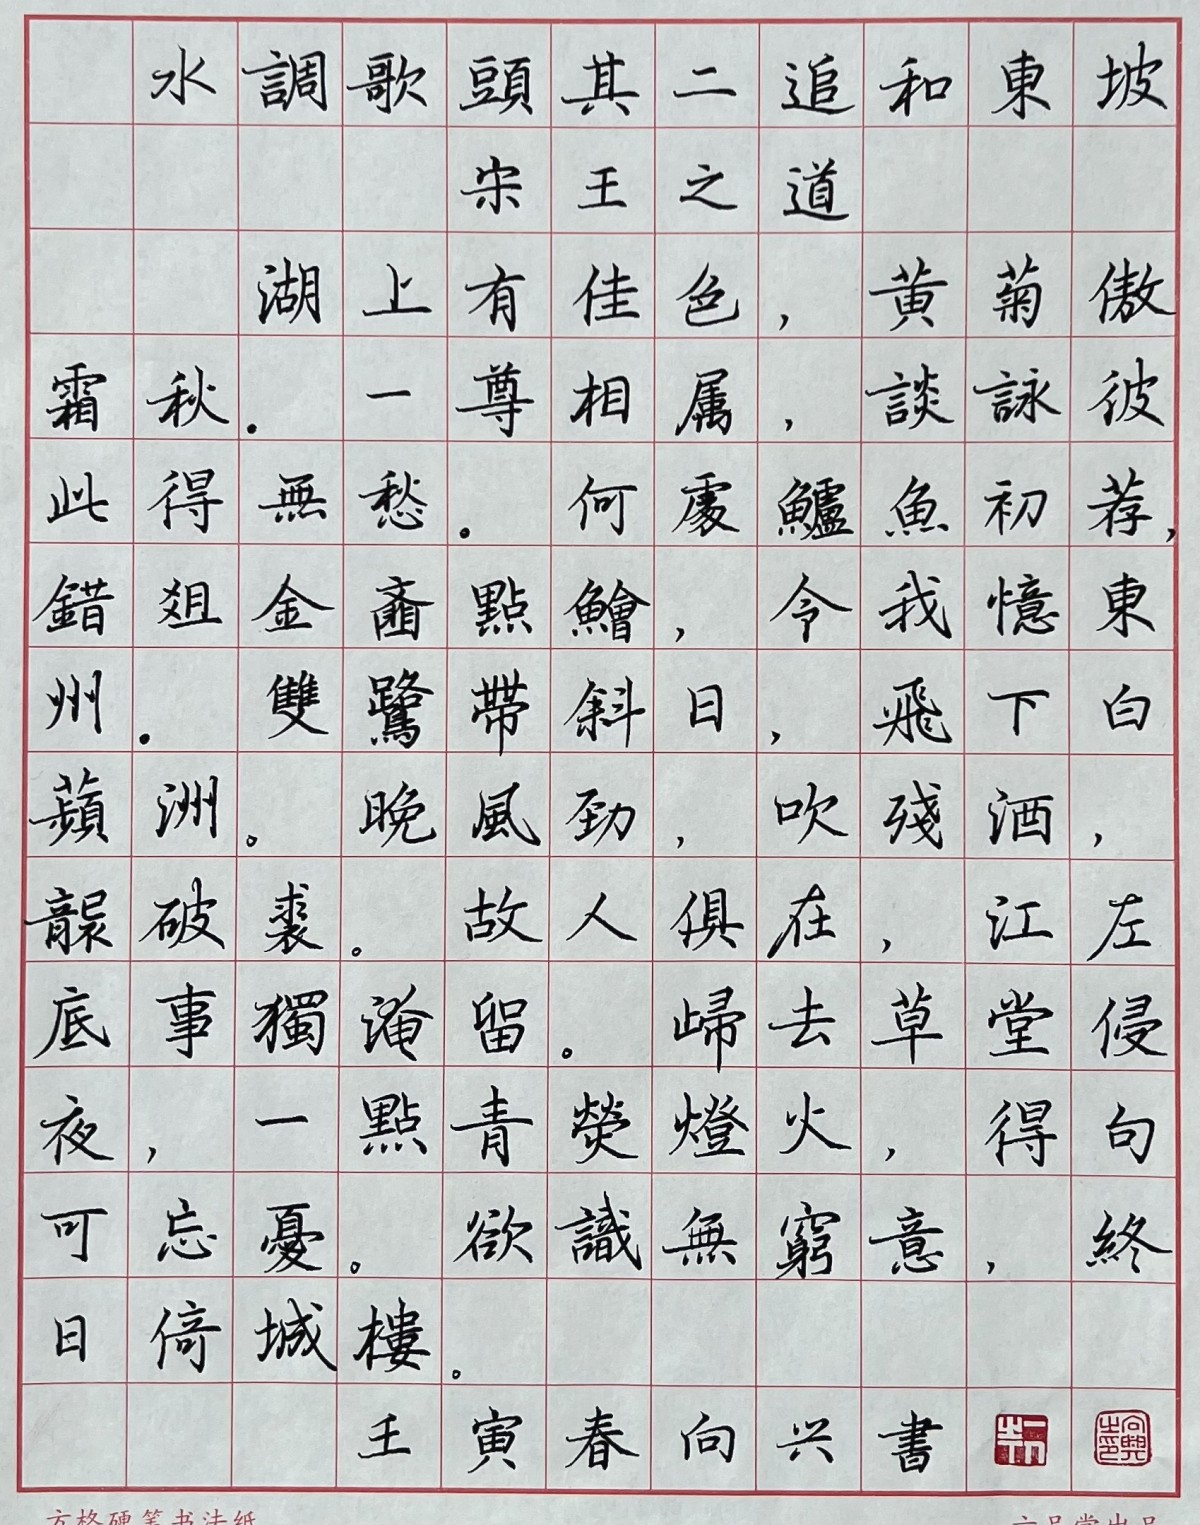 水調歌頭其二追和東坡
宋王之道
湖上有佳色，黄菊傲
霜秋。一尊相属，談詠彼
此得無愁。何處鱸魚初荐，
錯俎金齏點鱠，令我憶東
州。雙鷺帶斜日，飛下白
蘋洲。晚風勁，吹殘酒，
襲破裘。故人俱在，江左
底事獨淹留。歸去草堂侵
夜，一點青熒燈火，得句
可忘憂。欲識無窮意，終
日倚城樓。
壬寅春向兴書
方格硬笔书法纸
六品堂出品